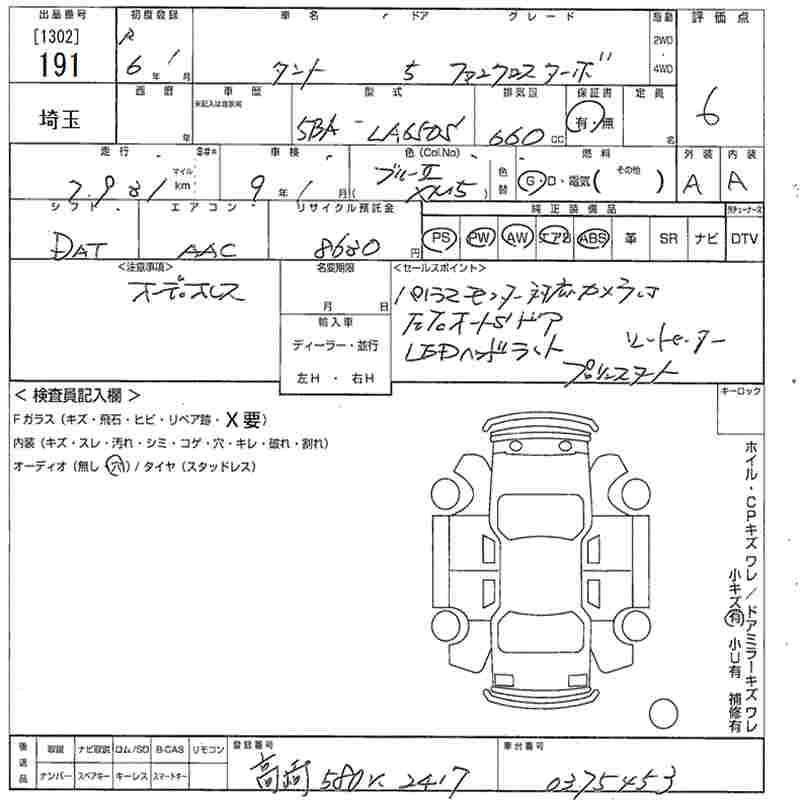 出品番号 初度登録 車名 ドア グレード 駆動 評価点
[1302] R 2WD
191 6年 1月 タント 5 ファンクロス ターボ ・
4WD
6
西暦 車歴 型式 排気量 保証書 定員
埼玉 未記入は自家用
年 5BA - LA650S 660 CC 有・無 名
走行 車検 色(Col.No) 燃料 外装 内装
マイル km 9年 1月 ( ) 色替 G・D・電気( その他 ) A A
シフト エアコン リサイクル預託金 純正装備品
DAT AAC 8680円 PS PW AW エアB ABS 革 SR ナビ DTV
<注意事項> 名変期限 <セールスポイント>
オーディオレス
月 日
輸入車 LEDヘッドライト シートヒーター
ディーラー・並行
左H ・ 右H
< 検査員記入欄 > キーロック
Fガラス(キズ・飛石・ヒビ・リペア跡・X要)
内装(キズ・スレ・汚れ・シミ・コゲ・穴・キレ・破れ・割れ)
オーディオ(無し 穴)/タイヤ(スタッドレス)
ホイル・CPキズ ワレ / ドアミラーキズ ワレ
小キズ有 小U有 補修有
後送品 取説 ナビ取説 ロム/SD B-CAS リモコン 登録番号 車台番号
ナンバー スペアキー キーレス スマートキー 高崎 580 い 2417 0375453